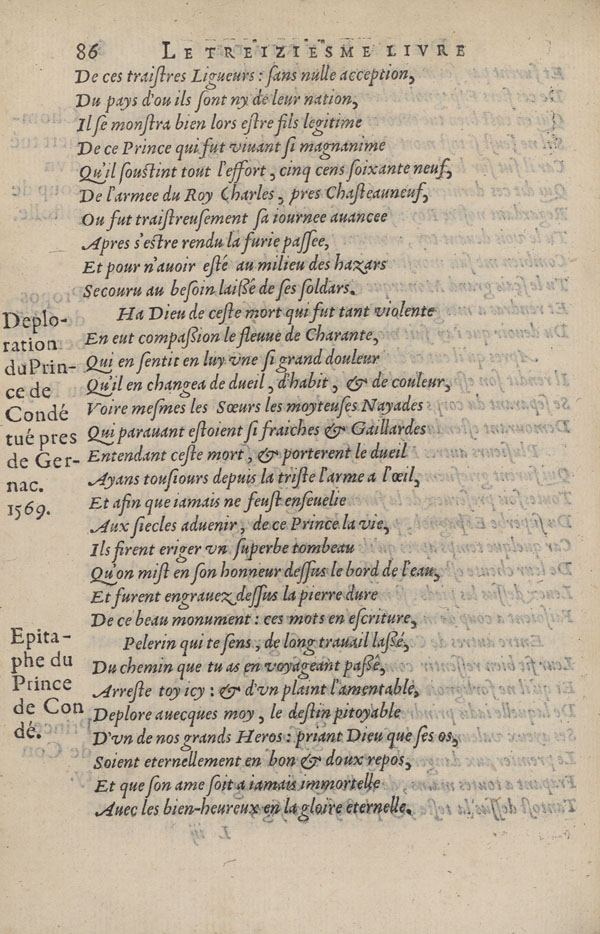 86 LE TREIZIESME LIVRE
De ces traistres Ligueurs : sans nulle acception,
Du pays d'ou ils sont ny de leur nation,
Il se monstra bien lors estre fils legitime
De ce Prince qui fut viuant si magnanime
Qu'il soustint tout l'effort, cinq cens soixante neuf,
De l'armee du Roy Charles, pres Chasteauneuf,
Ou fut traistreusement sa iournee auancee
Apres s'estre rendu la furie passee,
Et pour n'auoir esté au milieu des hazars
Secouru au besoin laissé de ses soldars.
Deplo-
ration
du Prin-
ce de
Condé
tué pres
de Ger-
nac.
1569.
Ha Dieu de ceste mort qui fut tant violente
En eut compassion le fleuue de Charante,
Qui en sentit en luy vne si grand douleur
Qu'il en changea de dueil, d'habit, & de couleur,
Voire mesmes les Sœurs les moyteuses Nayades
Qui parauant estoient si fraiches & Gaillardes
Entendant ceste mort, & porterent le dueil
Ayans tousiours depuis la triste l'arme a l'œil,
Et afin que iamais ne feust enseuelie
Aux siecles aduenir, de ce Prince la vie,
Ils firent eriger vn superbe tombeau
Qu'on mist en son honneur dessus le bord de l'eau,
Et furent engrauez dessus la pierre dure
De ce beau monument : ces mots en escriture,
Epita-
phe du
Prince
de Con
dé.
Pelerin qui te sens, de long trauail lassé,
Du chemin que tu as en voyageant passé,
Arreste toy icy : & d'vn plaint l'amentable,
Deplore auecques moy, le destin pitoyable
D'vn de nos grands Heros : priant Dieu que ses os,
Soient eternellement en bon & doux repos,
Et que son ame soit a iamais immortelle
Auec les bien-heureux en la gloire eternelle.